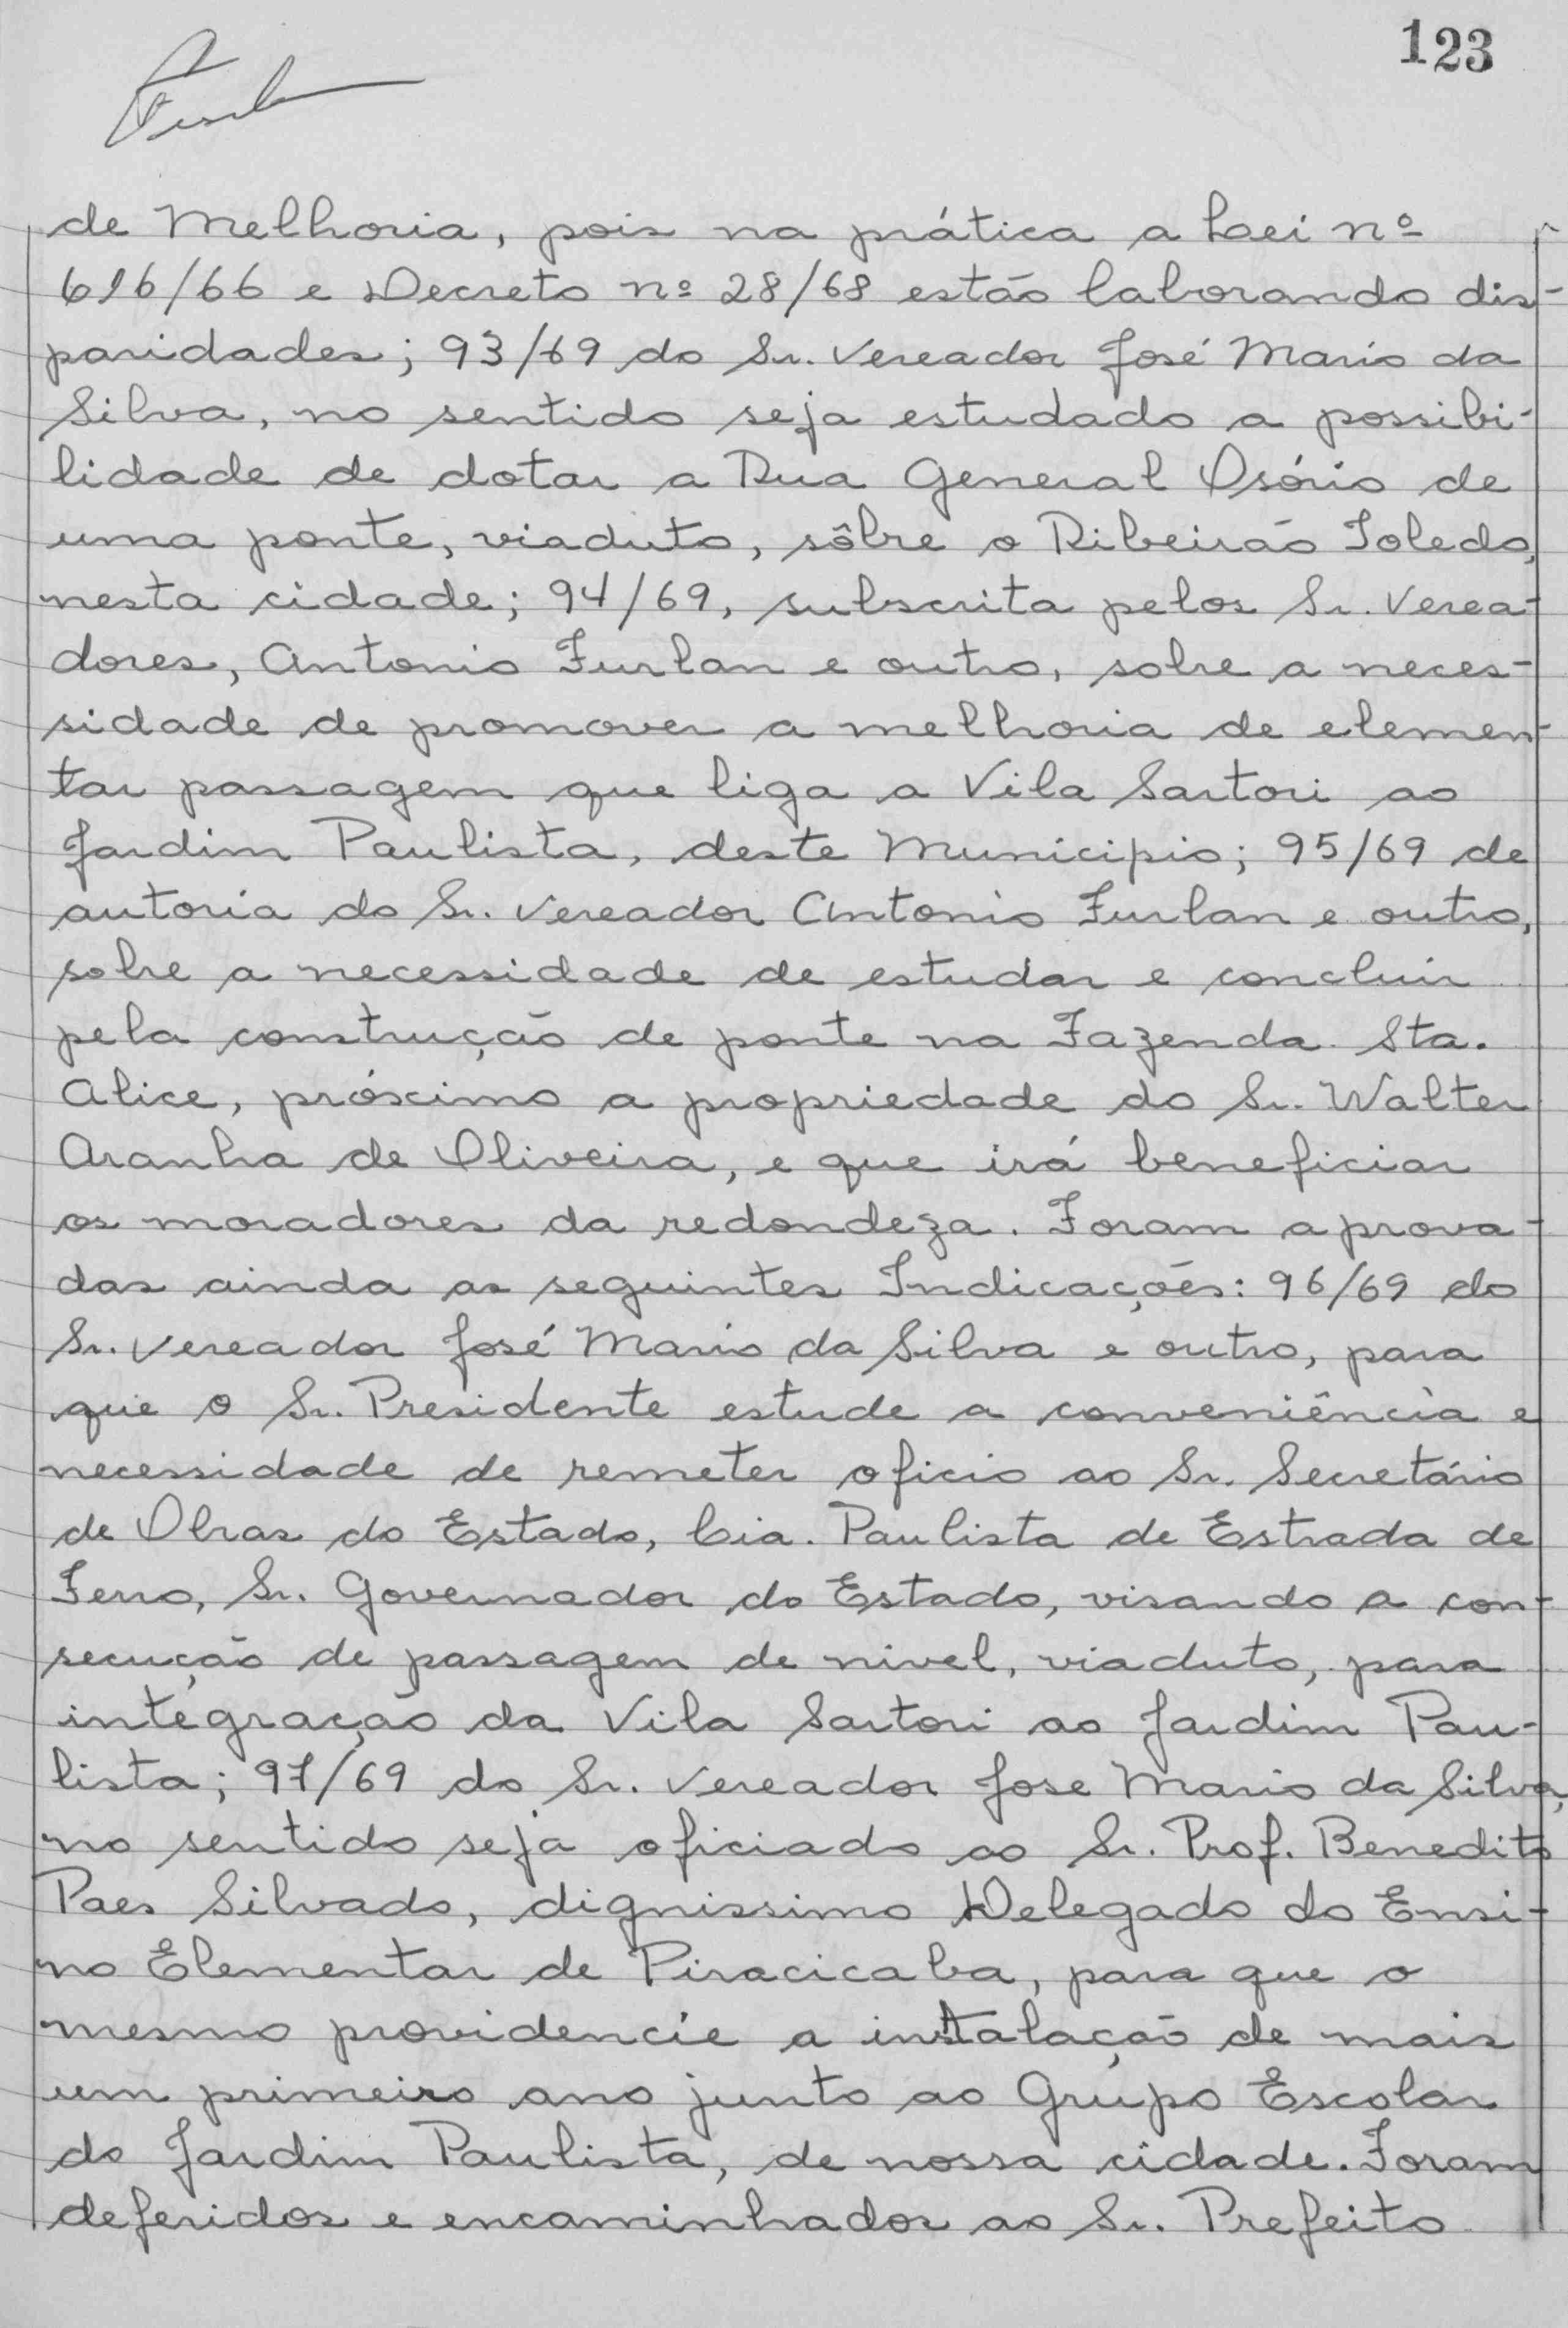 123
de Melhoria, pois na prática a Lei nº
616/66 e Decreto nº 28/68 estão laborando dis-
paridades; 93/69 do Sr. Vereador José Mario da
Silva, no sentido seja estudado a possibi-
lidade de dotar a Rua General Osório de
uma ponte, viaduto, sôbre o Ribeirão Toledo,
nesta cidade; 94/69, subscrita pelos Sr. Verea-
dores, Antonio Furlan e outro, sobre a neces-
sidade de promover a melhoria de elemen-
tar passagem que liga a Vila Sartori ao
Jardim Paulista, deste Municipio; 95/69 de
autoria do Sr. Vereador Antonio Furlan e outro,
sobre a necessidade de estudar e concluir
pela construção de ponte na Fazenda Sta.
Alice, próximo a propriedade do Sr. Walter
Aranha de Oliveira, e que irá beneficiar
os moradores da redondeza. Foram aprova-
das ainda as seguintes Indicações: 96/69 do
Sr. Vereador José Mario da Silva e outro, para
que o Sr. Presidente estude a conveniência e
necessidade de remeter oficio ao Sr. Secretário
de Obras do Estado, Cia. Paulista de Estrada de
Ferro, Sr. Governador do Estado, visando a con-
secução de passagem de nivel, viaduto, para
integração da Vila Sartori ao Jardim Pau-
lista; 97/69 do Sr. Vereador Jose Mario da Silva,
no sentido seja oficiado ao Sr. Prof. Benedito
Paes Silvado, dignissimo Delegado do Ensi-
no Elementar de Piracicaba, para que o
mesmo providencie a instalação de mais
um primeiro ano junto ao Grupo Escolar
do Jardim Paulista, de nossa cidade. Foram
deferidos e encaminhados ao Sr. Prefeito